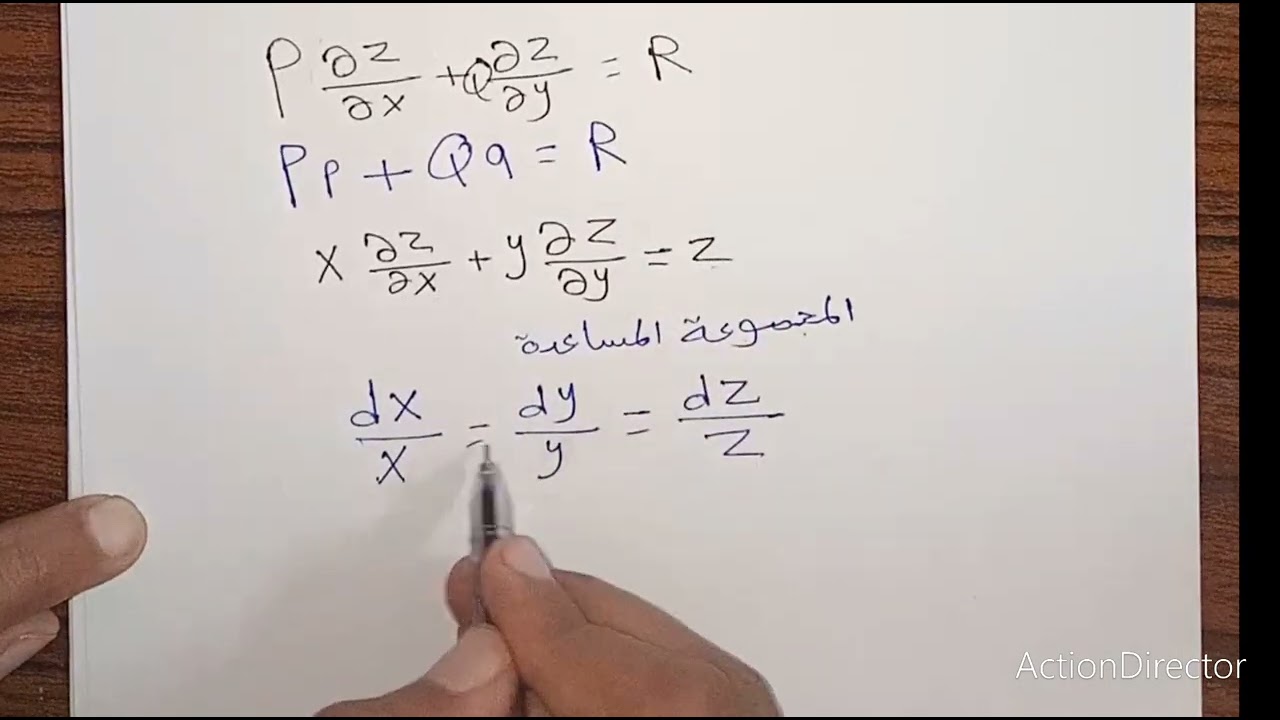 P ∂z/∂x + Q ∂z/∂y = R
Pp + Qq = R
x ∂z/∂x + y ∂z/∂y = z
المجموعة المساعدة
dx/x = dy/y = dz/z
ActionDirector